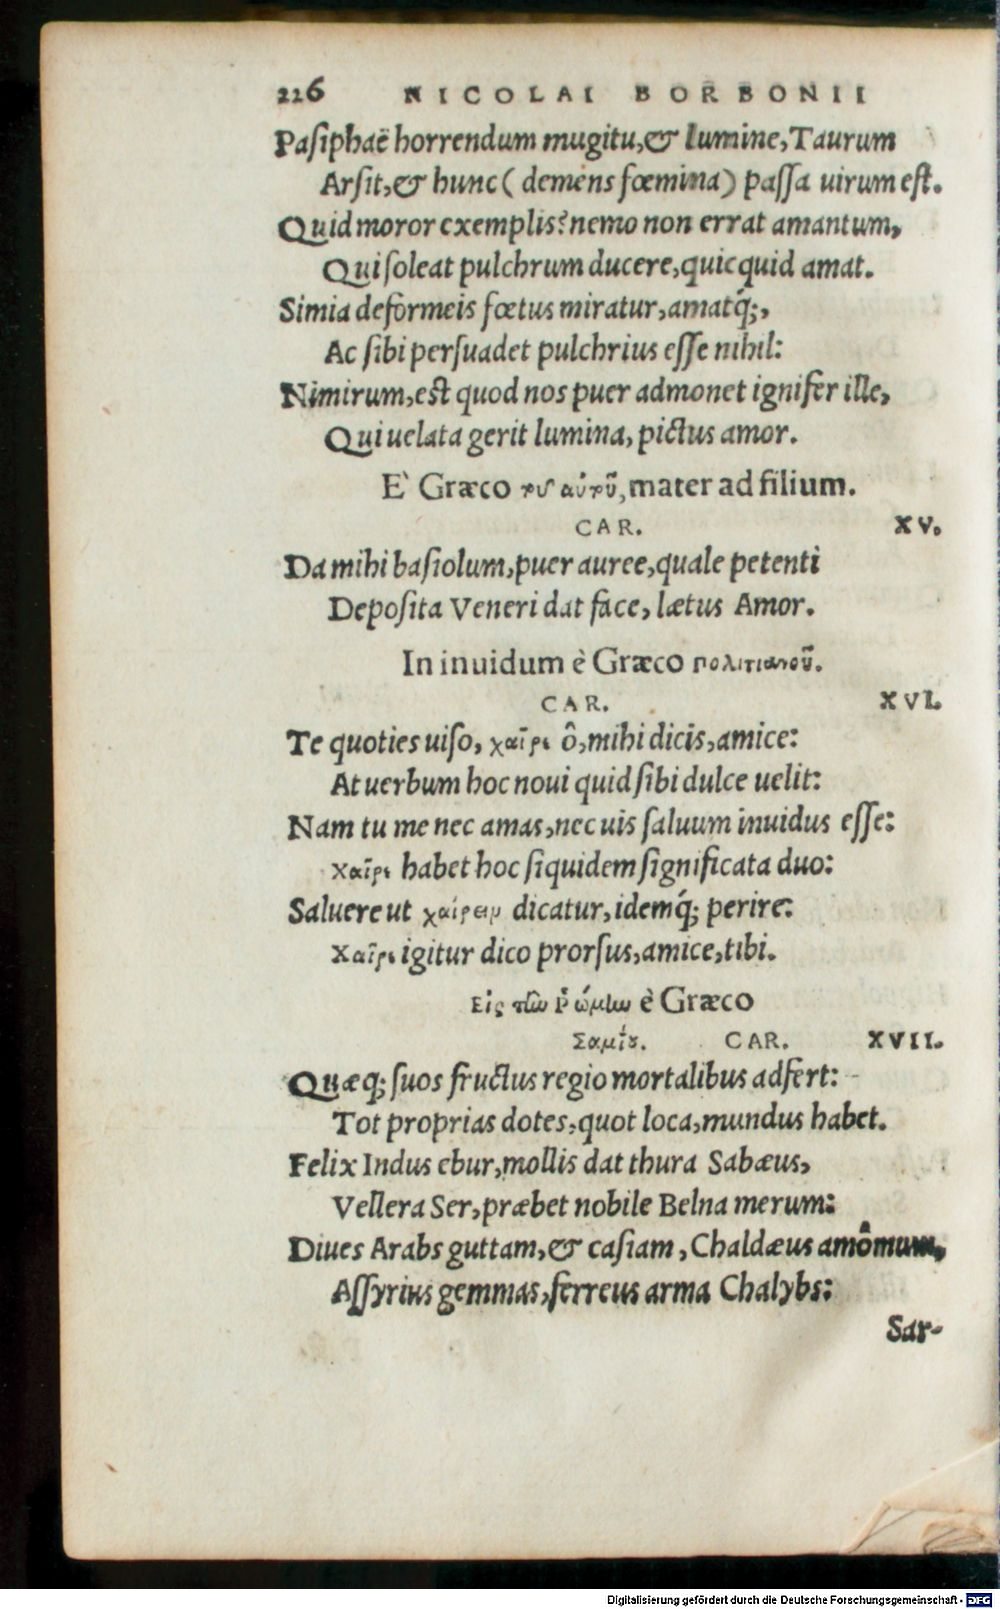 226 NICOLAI BORBONII
Pasiphaë horrendum mugitu,& lumine,Taurum
Arsit,& hunc( demens fœmina) passa uirum est.
Quid moror exemplis? nemo non errat amantum,
Qui soleat pulchrum ducere,quicquid amat.
Simia deformeis fœtus miratur,amatq́;,
Ac sibi persuadet pulchrius esse nihil:
Nimirum,est quod nos puer admonet ignifer ille,
Qui uelata gerit lumina, pictus amor.
E` Græco τοῦ αὐτοῦ, mater ad filium.
CAR. XV.
Da mihi basiolum,puer auree,quale petenti
Deposita Veneri dat face, lætus Amor.
In inuidum è Græco πολιτιανοῦ.
CAR. XVI.
Te quoties uiso, χαῖρε ô,mihi dicis,amice:
At uerbum hoc noui quid sibi dulce uelit:
Nam tu me nec amas,nec uis saluum inuidus esse:
χαῖρε habet hoc siquidem significata duo:
Saluere ut χαίρειν dicatur,idemq́; perire:
Χαῖρε igitur dico prorsus,amice,tibi.
Εἰς τὴν Ῥώμην è Græco
Σαμίου. CAR. XVII.
Quæq; suos fructus regio mortalibus adfert:
Tot proprias dotes,quot loca,mundus habet.
Felix Indus ebur,mollis dat thura Sabæus,
Vellera Ser,præbet nobile Belna merum:
Diues Arabs guttam,& casiam, Chaldæus amômum,
Assyrius gemmas,ferreus arma Chalybs:
Sar-
Digitalisierung gefördert durch die Deutsche Forschungsgemeinschaft - DFG